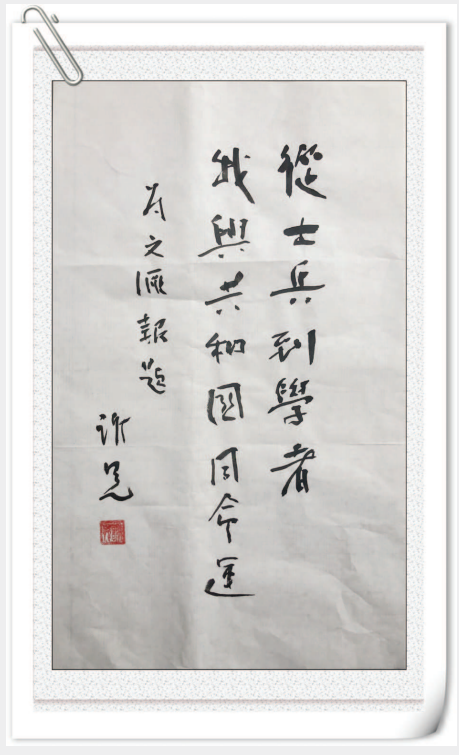 從士兵到學者
我與共和國同命運
為文匯報題
許